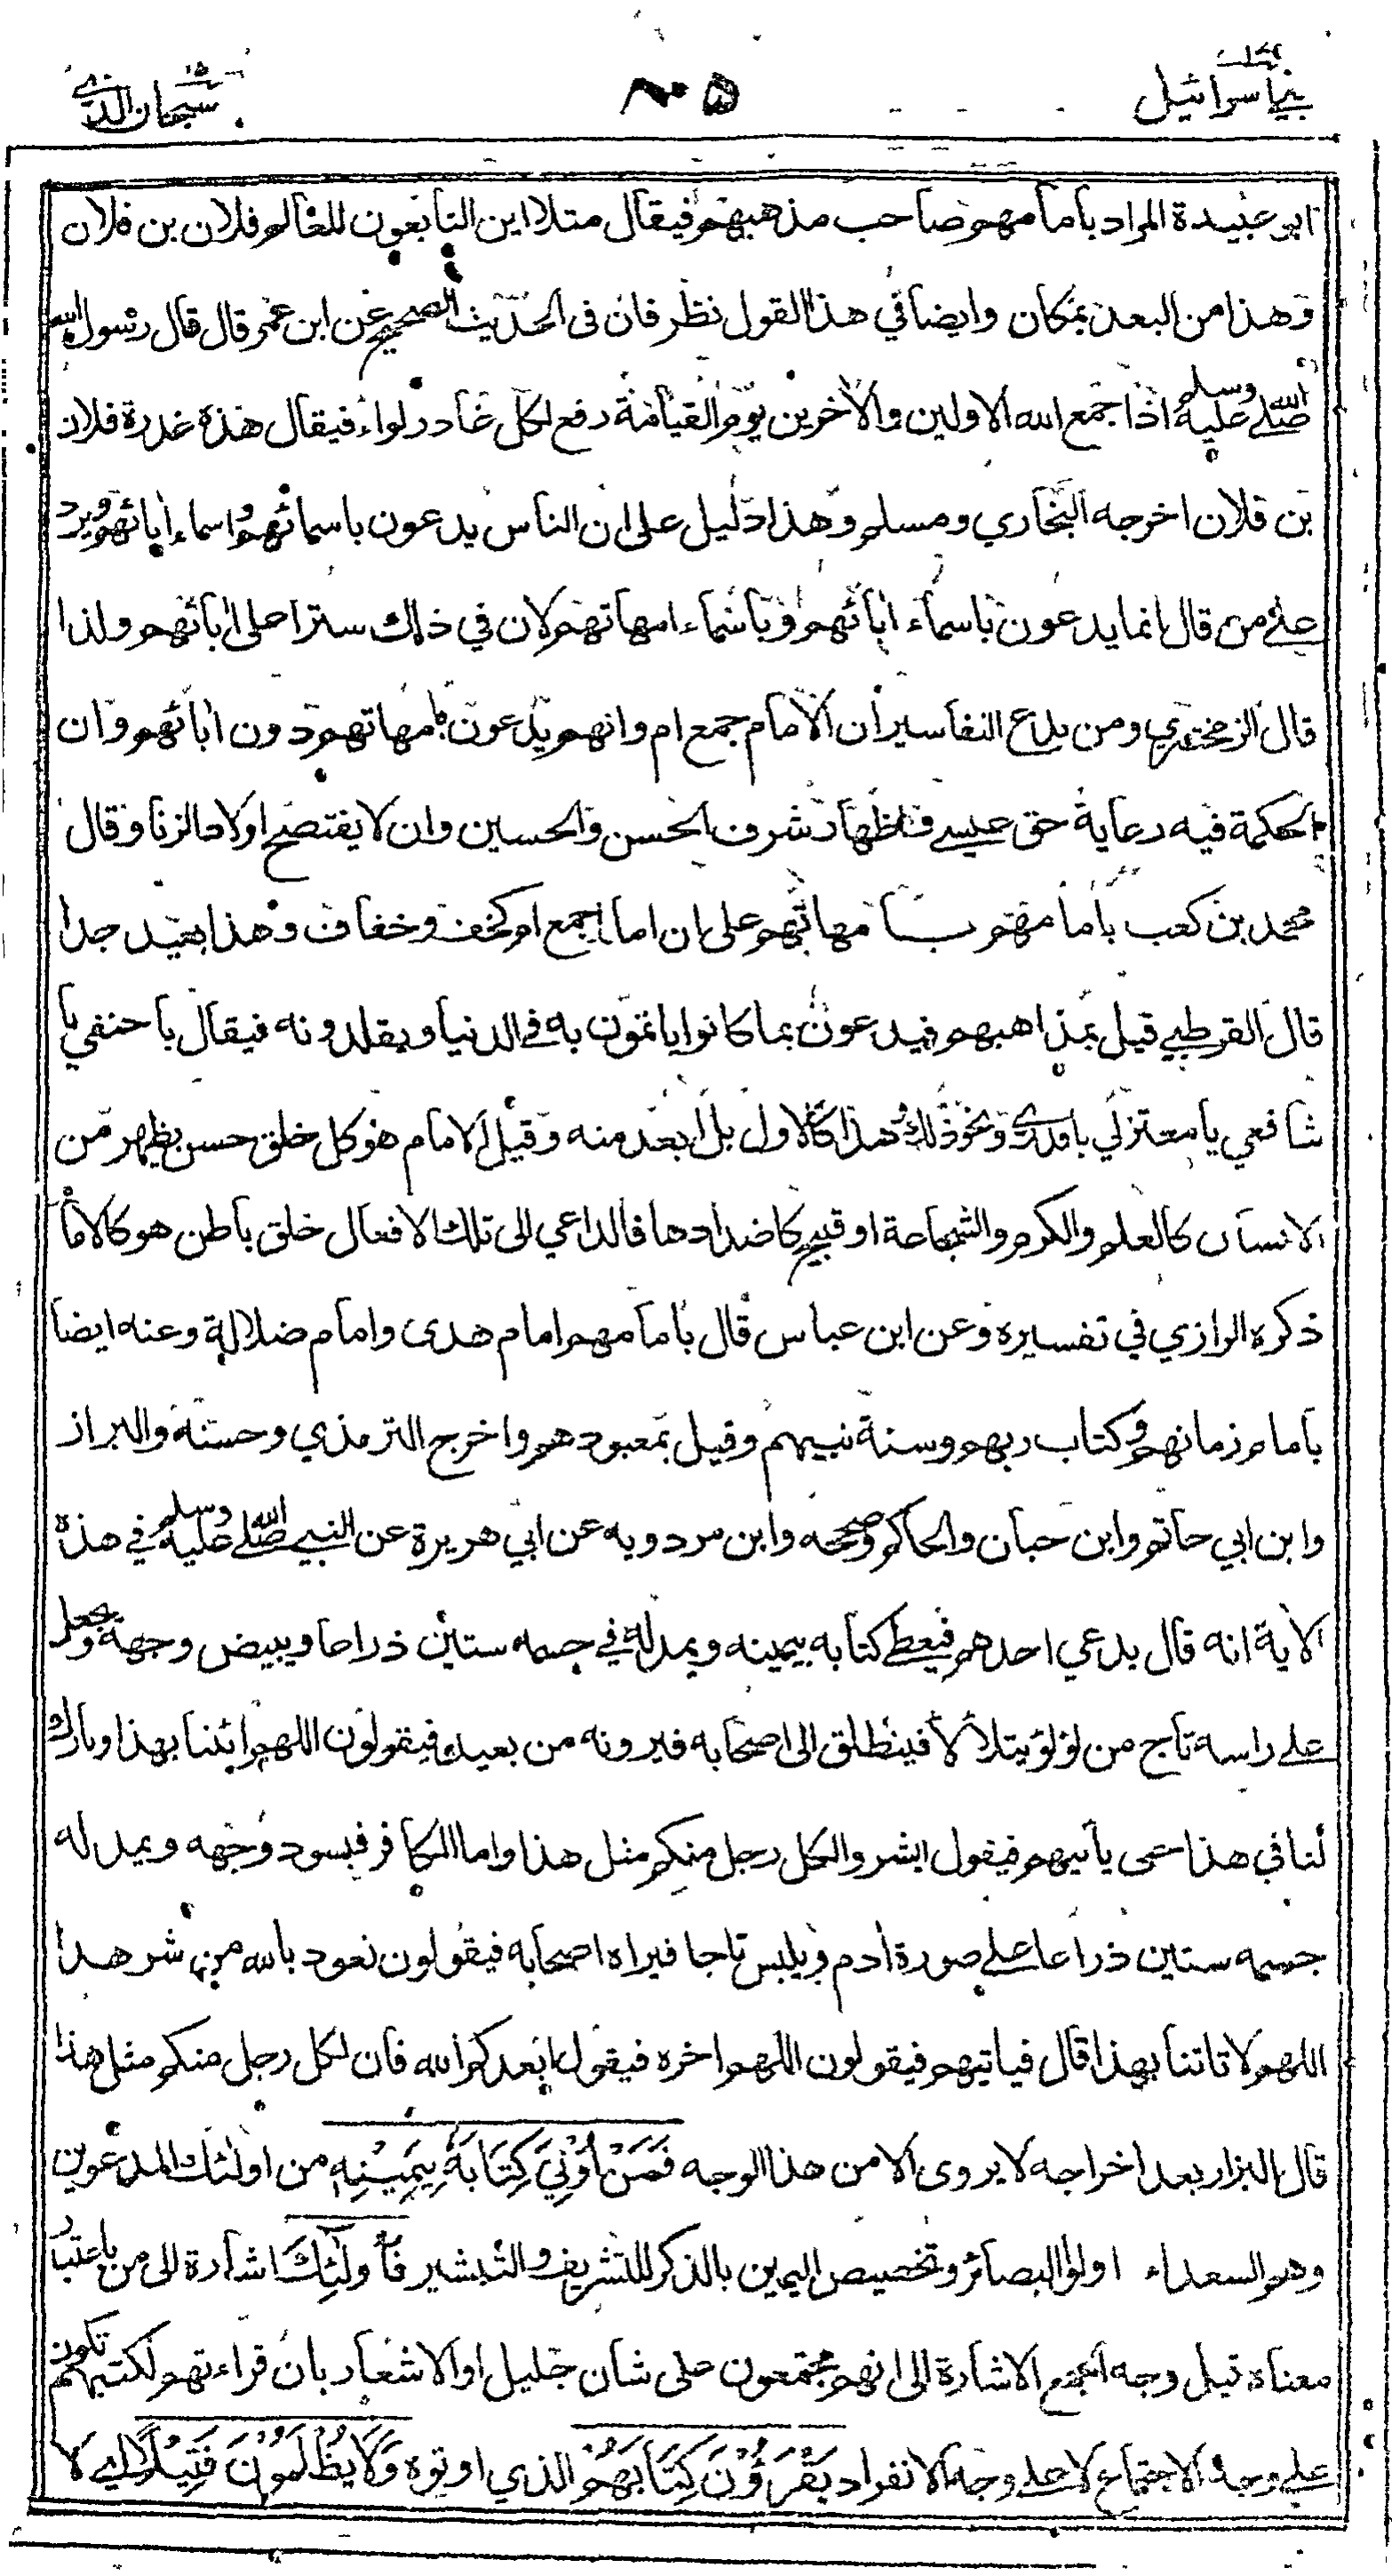 بني اسرائيل
سبحان الذي ١٥
ابو عبيدة المراد بامامهم صاحب مذهبهم فيقال مثلا اين التابعون للعالم فلان بن فلان
وهذا من البعد بمكان وايضا في هذا القول نظر فان فى الحديث الصحيح عن ابن عمر قال قال رسول الله
صلى الله عليه وسلم اذا جمع الله الاولين والاخرين يوم القيامة رفع لكل غادر لواء فيقال هذه غدرة فلان
بن فلان اخرجه البخاري ومسلم وهذا دليل على ان الناس يدعون باسمائهم واسماء ابائهم ويرد
على من قال انما يدعون باسماء ابائهم وباسماء امهاتهم لان في ذلك سترا على ابائهم ولذا
قال الزمخشري ومن بدع التفاسير ان الامام جمع ام وانهم يدعون بامهاتهم دون ابائهم وان
الحكمة فيه رعاية حق عيسى واظهار شرف الحسن والحسين وان لا يفتضح اولاد الزنا وقال
محمد بن كعب بامامهم بامهاتهم على ان اماما جمع ام كخف وخفاف وهذا بعيد جدا
قال القرطبي قيل بمذاهبهم فيدعون بما كانوا ياتمون به في الدنيا ويقلدونه فيقال يا حنفي يا
شافعي يا معتزلي يا قدري ونحوذلك وهذا كالاول بل ابعد منه وقيل الامام هو كل خلق حسن يظهر من
الانسان كالعلم والكرم والشجاعة او قبيح كاضدادها فالداعي الى تلك الافعال خلق باطن هو كالامام
ذكره الرازي في تفسيره وعن ابن عباس قال بامامهم امام هدى وامام ضلالة وعنه ايضا
بامام زمانهم وكتاب ربهم وسنة نبيهم وقيل بمعبودهم واخرج الترمذي وحسنه والبزار
وابن ابي حاتم وابن حبان والحاكم وصححه وابن مردويه عن ابي هريرة عن النبي صلى الله عليه وسلم في هذه
الاية انه قال يدعى احدهم فيعطى كتابه بيمينه ويمد له في جسمه ستين ذراعا ويبيض وجهه ويجعل
على راسه تاج من لؤلؤ يتلألأ فينطلق الى اصحابه فيرونه من بعيد فيقولون اللهم ائتنا بهذا وبارك
لنا في هذا حتى يأتيهم فيقول ابشروا لكل رجل منكم مثل هذا واما الكافر فيسود وجهه ويمد له
جسمه ستين ذراعا على صورة ادم ويلبس تاجا فيراه اصحابه فيقولون نعوذ بالله من شر هذا
اللهم لا تاتنا بهذا قال فياتيهم فيقولون اللهم اخره فيقول ابعدكم الله فان لكل رجل منكم مثل هذا
قال البزار بعد اخراجه لا يروى الا من هذا الوجه فَمَنْ أُوْتِيَ كِتَابَهُ بِيَمِيْنِهِ من اولئك المدعوين
وهم السعداء اولوا البصائر وتخصيص اليمين بالذكر للتشريف والتبشير فَأُولٰئِكَ اشارة الى من باعتبار
معناه قيل وجه الجمع الاشارة الى انهم مجتمعون على شان جليل او الاشعار بان قراءتهم لكتبهم تكون
على وجه الاجتماع لا على وجه الانفراد يَقْرَؤُوْنَ كِتَابَهُمْ الذي اوتوه وَلَا يُظْلَمُوْنَ فَتِيْلًا اي لا